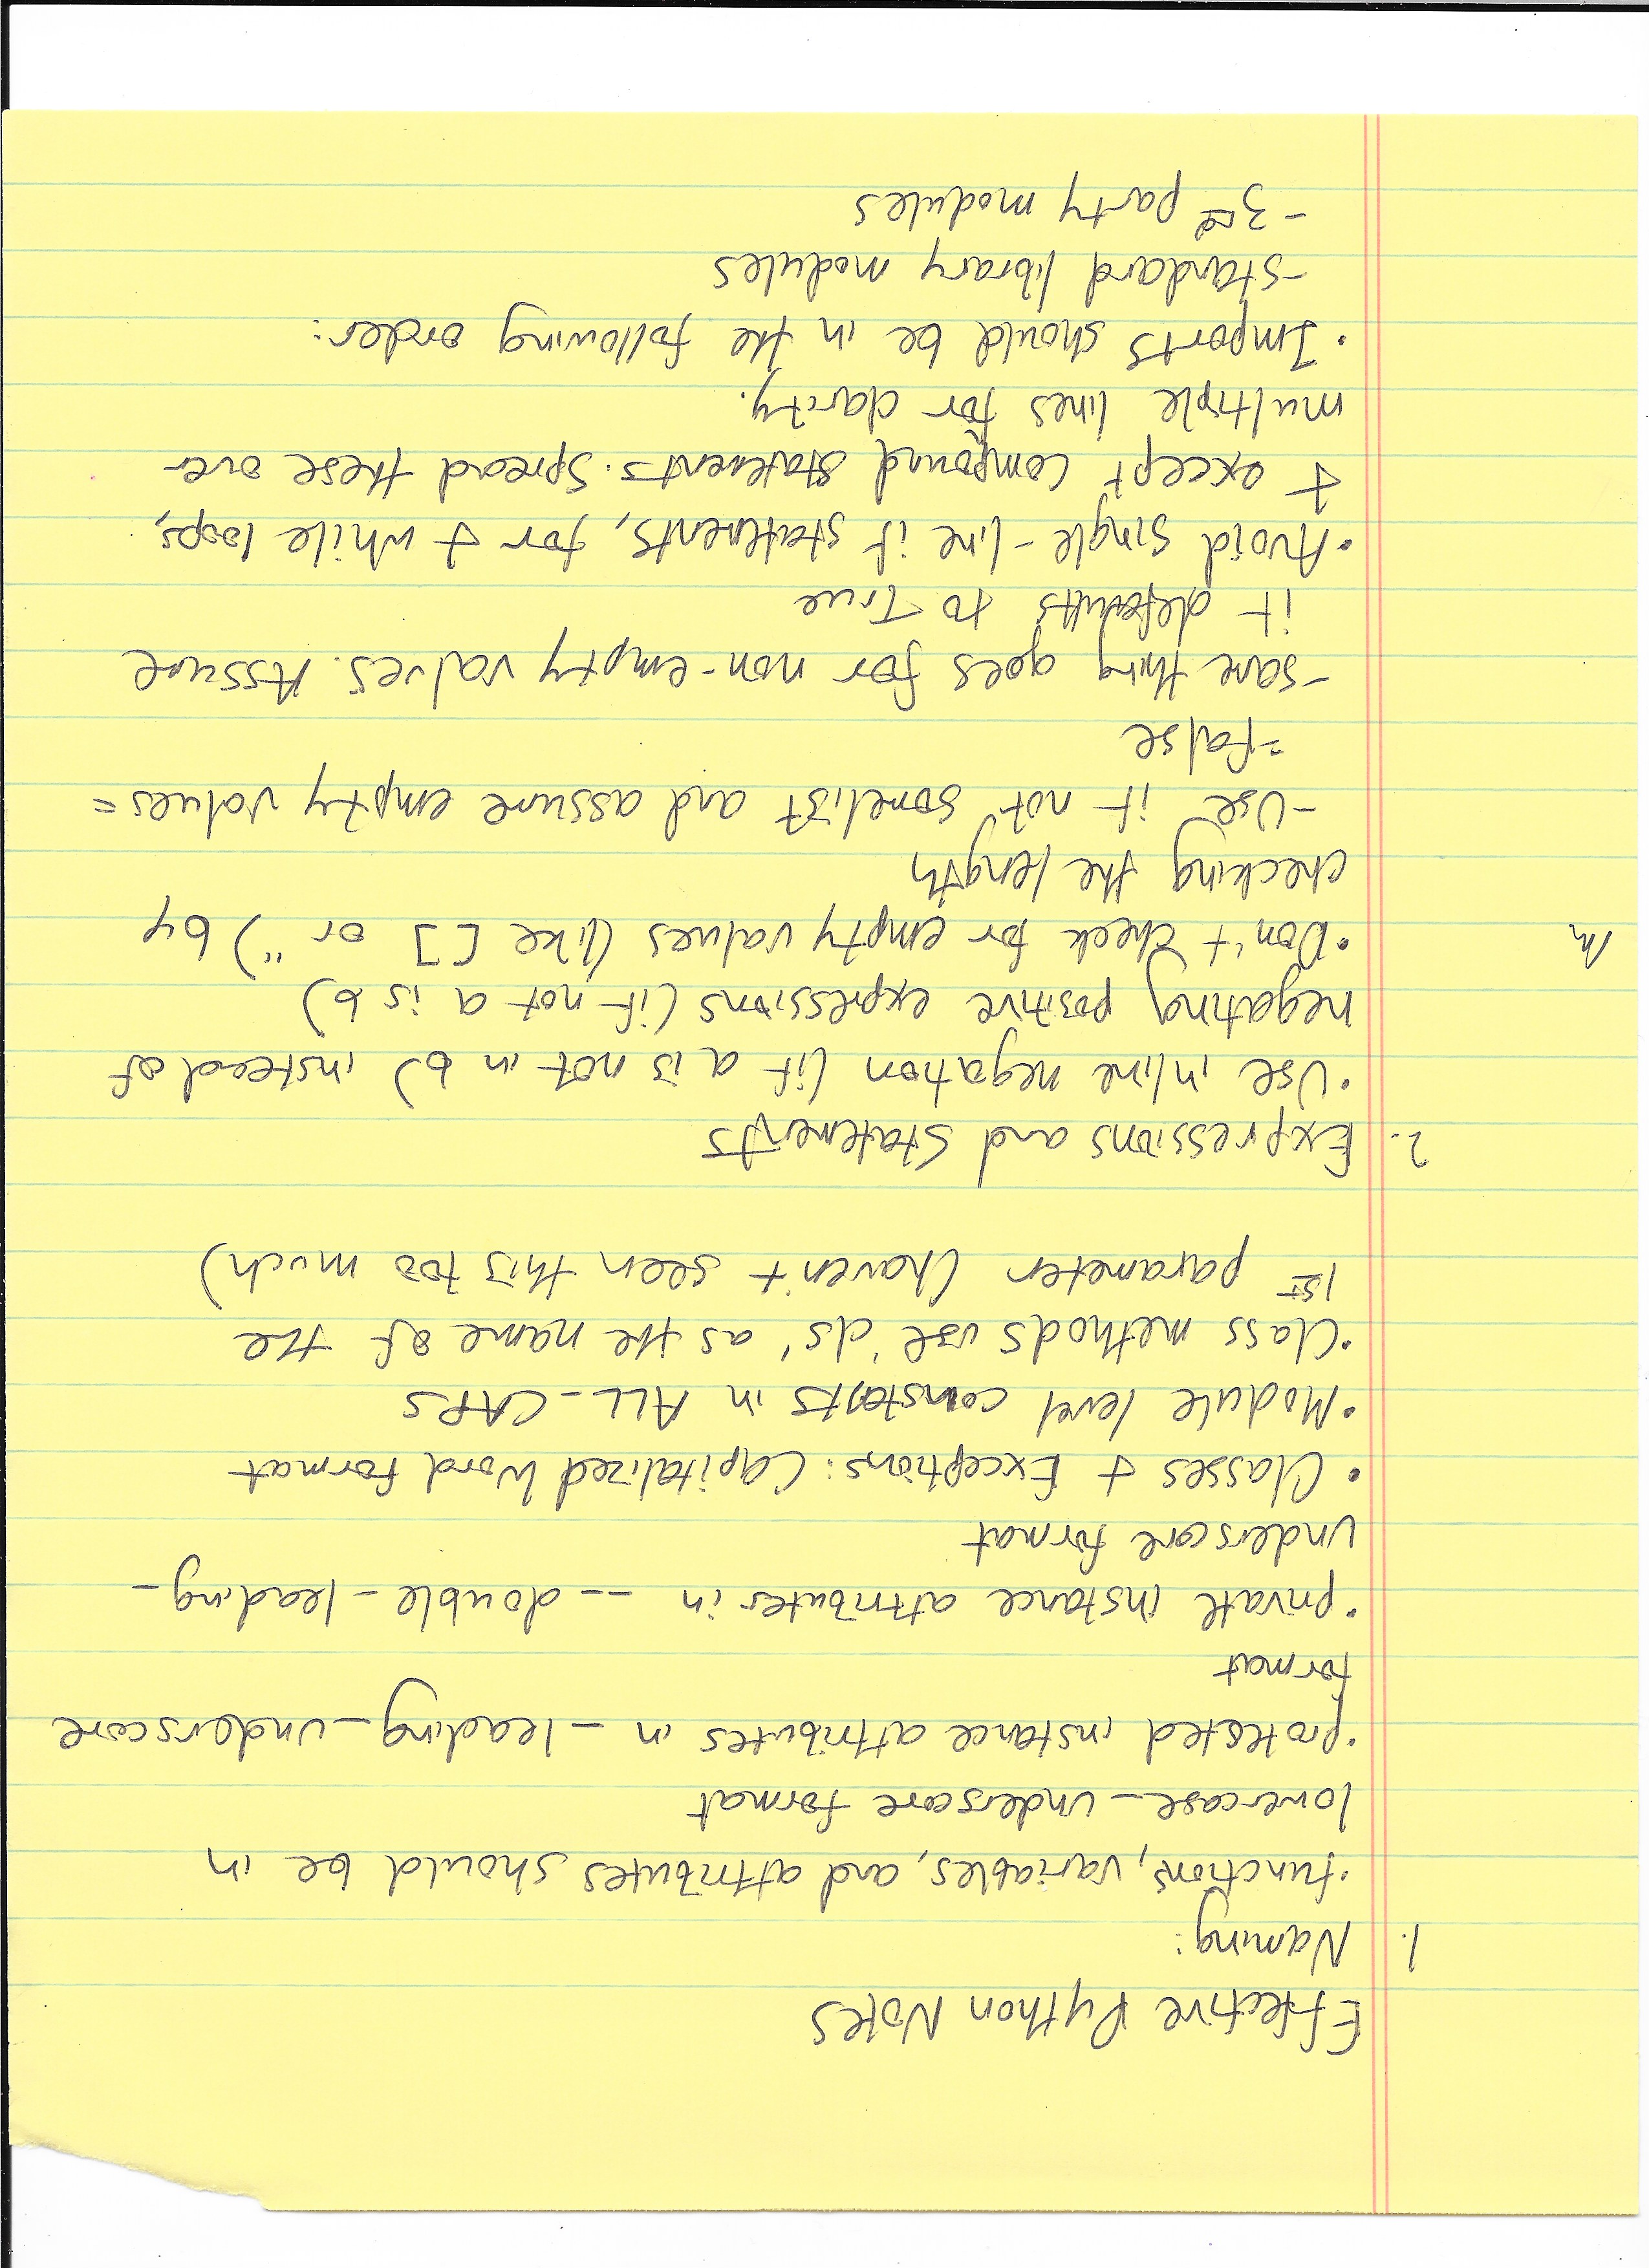 Effective Python Notes
1. Naming:
·functions, variables, and attributes should be in
lowercase_underscore format
·protected instance attributes in _leading_underscore
format
·private instance attributes in __double_leading_
underscore format
· Classes + Exceptions: Capitalized Word format
·Module level constants in ALL_CAPS
·Class methods use 'cls' as the name of the
1st parameter (haven't seen this too much)
2. Expressions and Statements
·Use inline negation (if a is not in b) instead of
negating positive expressions (if not a is b)
·Don't check for empty values (like [] or '') by
checking the length
-Use if not somelist and assume empty values=
=false
-same thing goes for non-empty values. Assume
it defaults to True
·Avoid single-line if statements, for + while loops,
+ except compound statements. Spread these over
multiple lines for clarity.
· Imports should be in the following order:
-standard library modules
-3rd party modules